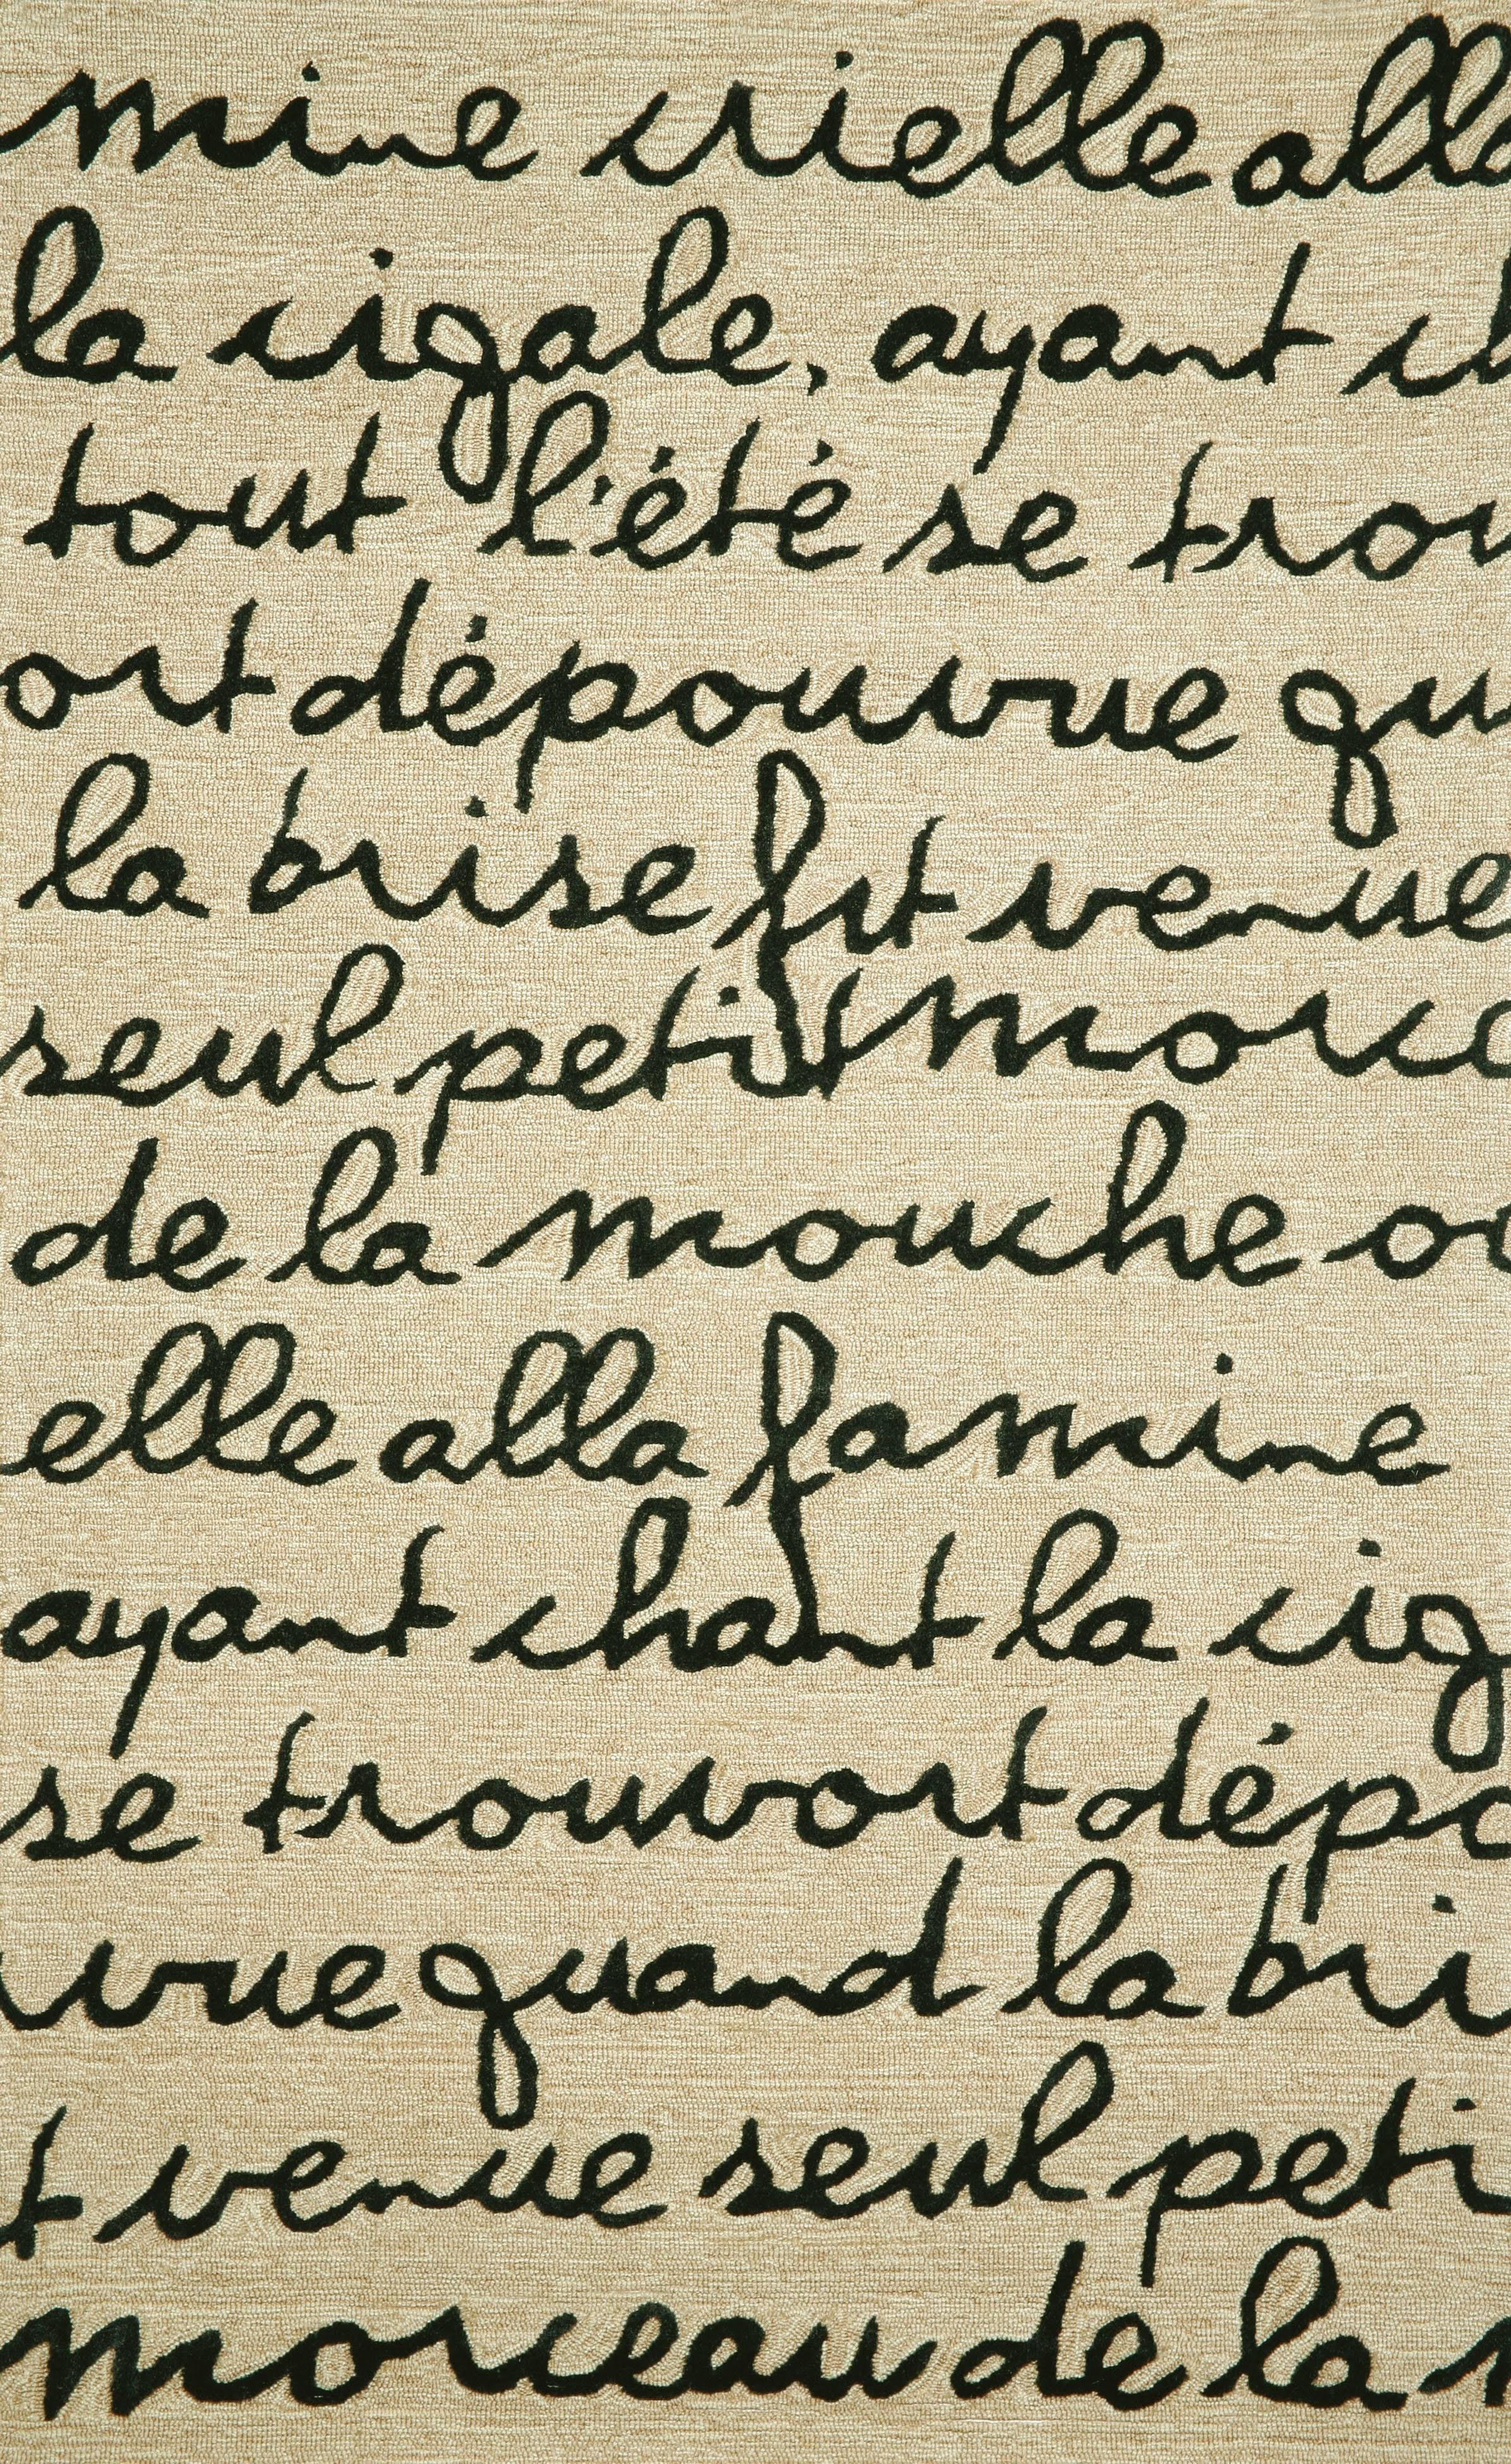 mine crielle alla
la cigale, ayant ch
tout l'été se trou
ort dépouvrue qu
la brise fut venue
seul petit morce
de la mouche ou
elle alla famine
ayant chant la cig
se trouvort dépo
uvrue quand la bri
t venue seul peti
morceau de la m